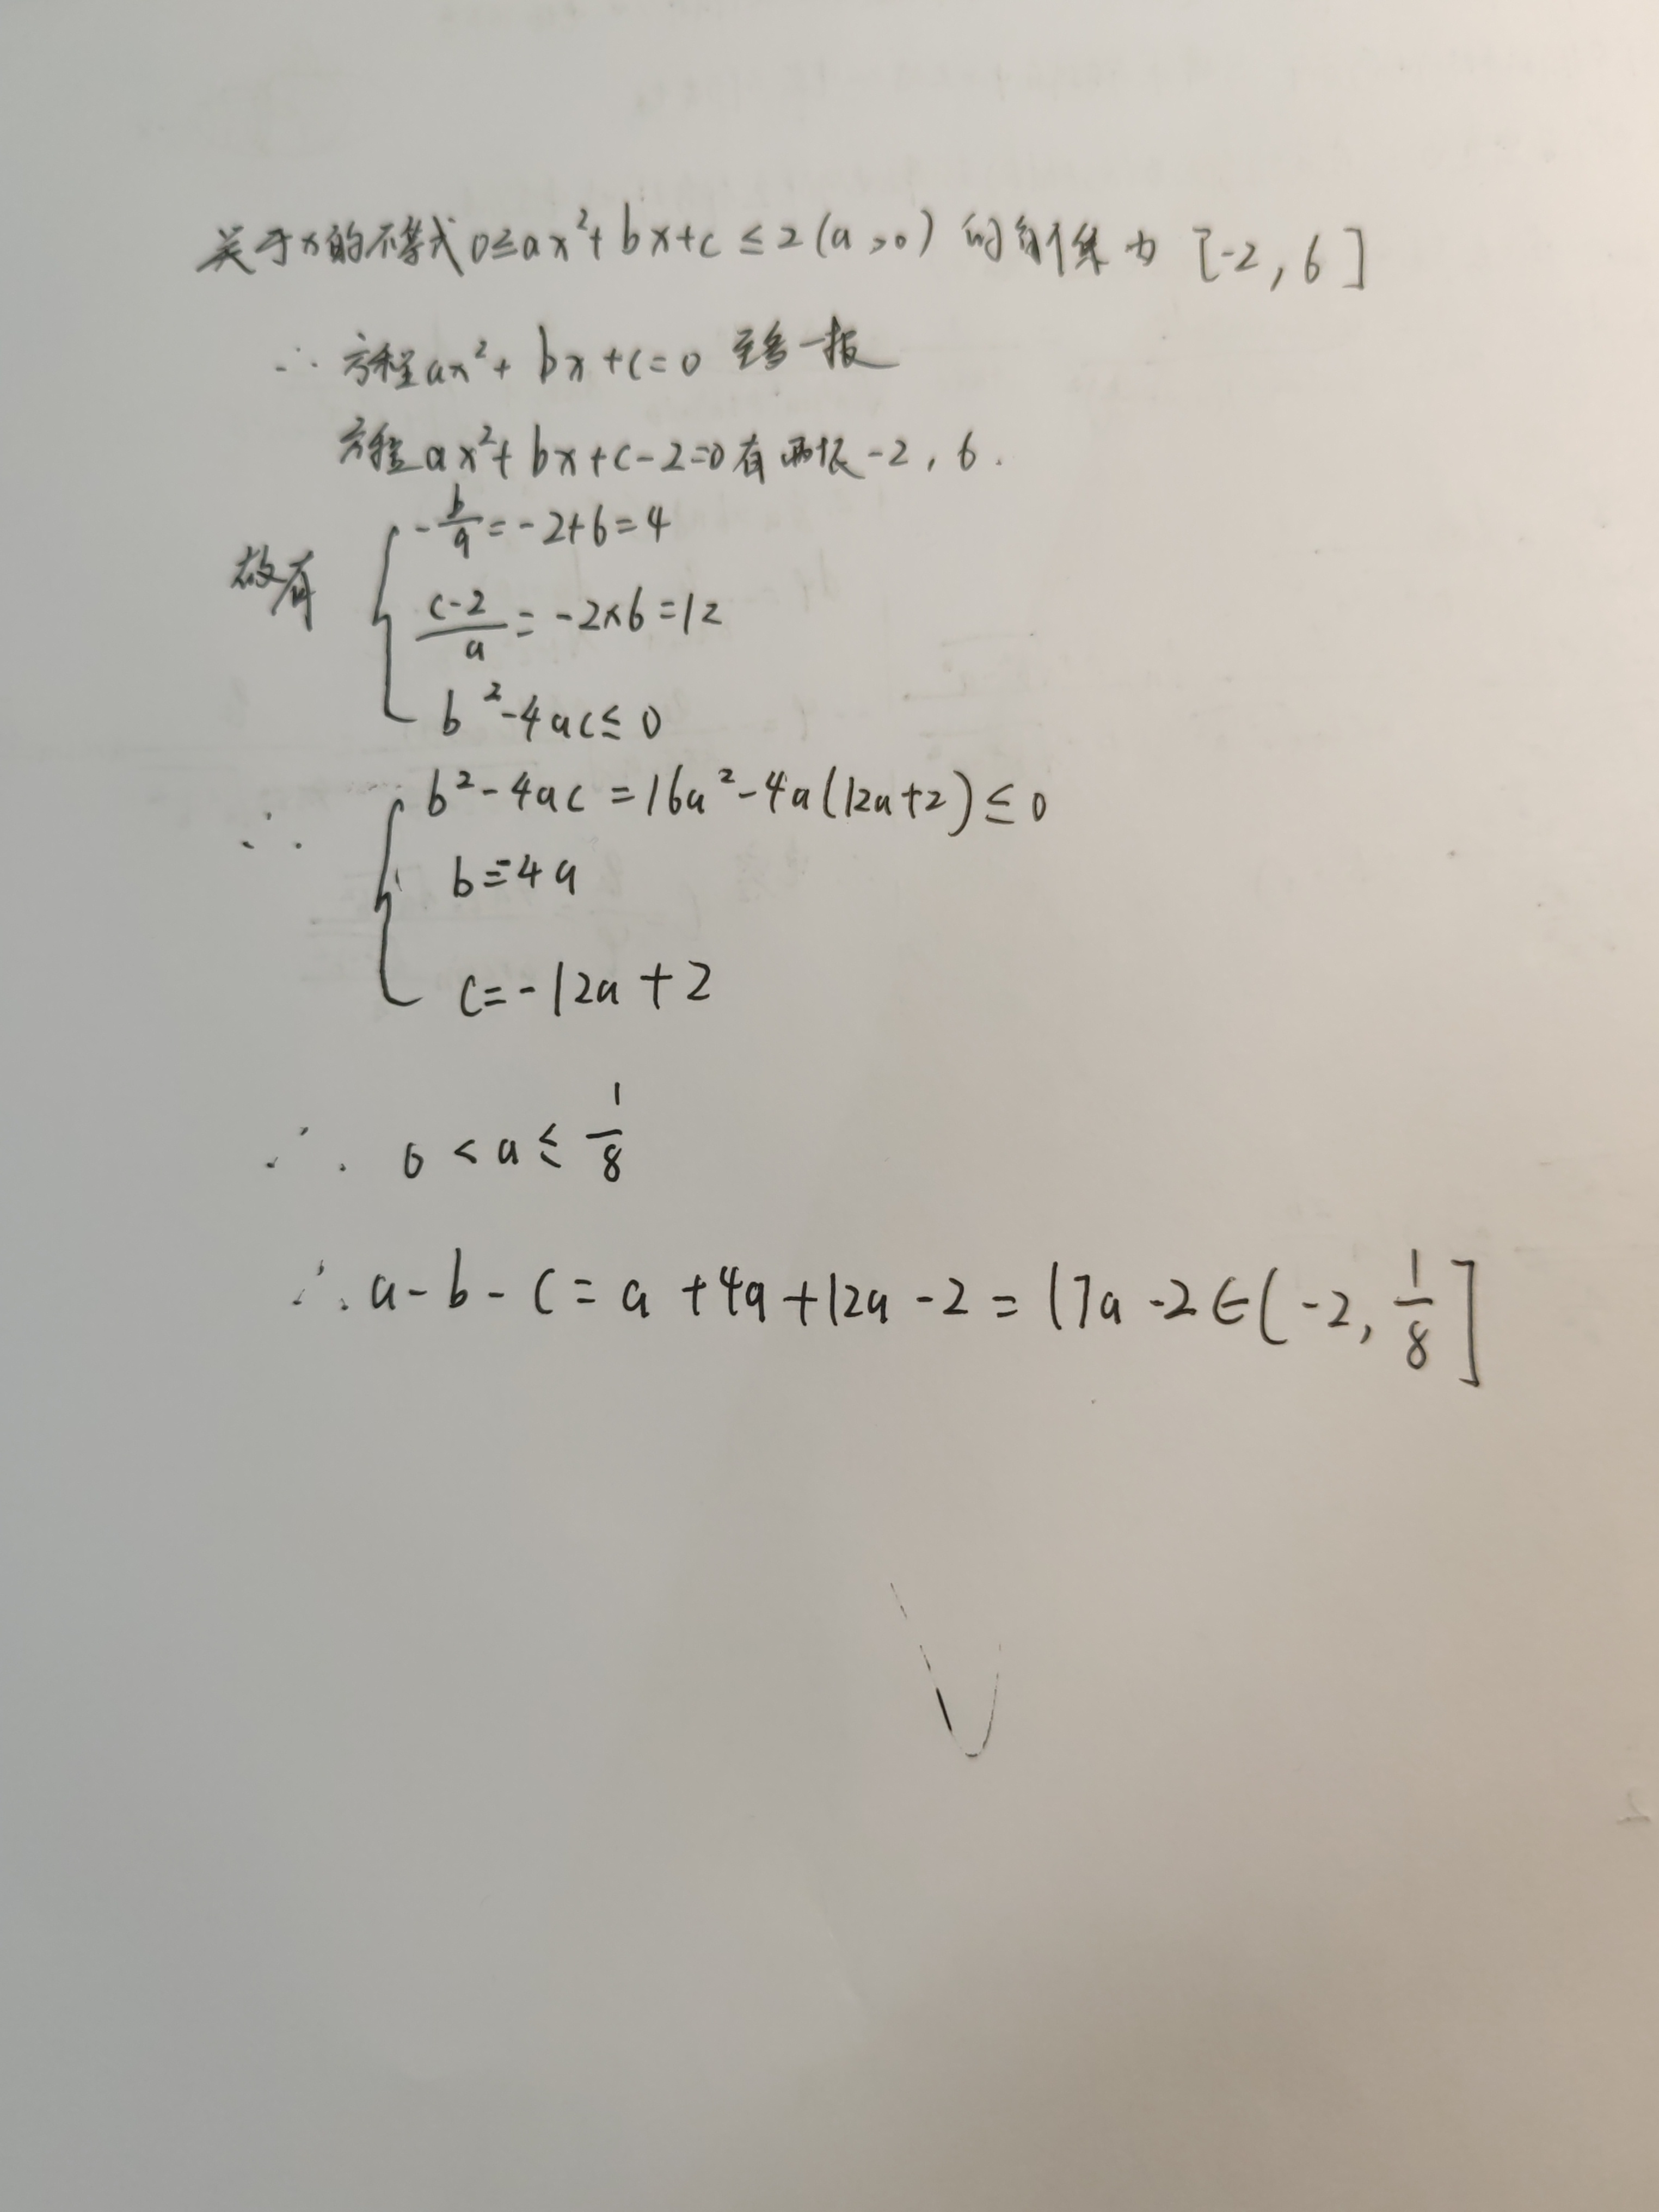 关于x的不等式0≤ax²+bx+c≤2(a>0)的解集为[-2,6]
∴方程ax²+bx+c=0至多一根
方程ax²+bx+c-2=0有两根-2,6.
故有
-b/a=-2+6=4
(c-2)/a=-2×6=12
b²-4ac≤0
∴ b²-4ac=16a²-4a(12a+2)≤0
b=-4a
c=-12a+2
∴ 0<a≤1/8
∴a-b-c=a+4a+12a-2=17a-2∈(-2,1/8]